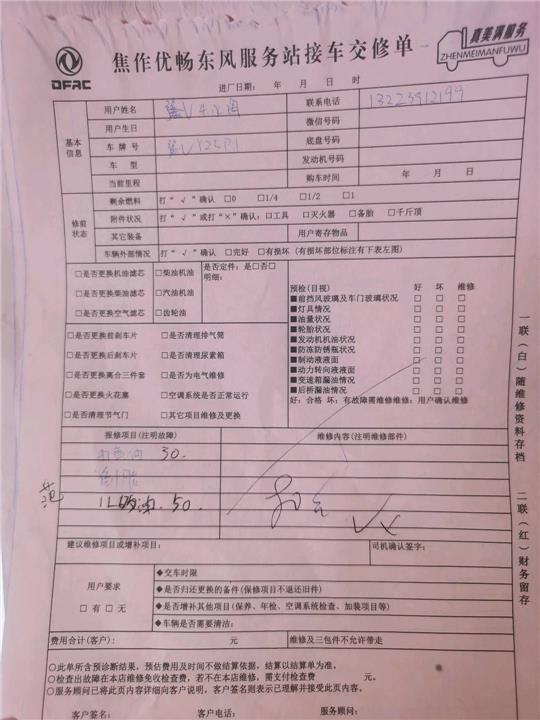 DFAC
焦作优畅东风服务站接车交修单
真美满服务
ZHENMEIMANFUWU
进厂日期: 年 月 日 时
基本信息
用户姓名 联系电话
用户生日 微信号码
车牌号 底盘号码
车 型 发动机号码
当前里程 购车时间 年 月 日
修前状态
剩余燃料 打“√”确认 □0 □1/4 □1/2 □1
附件状况 打“√”或打“×”确认:□工具 □灭火器 □备胎 □千斤顶
其它装备 用户寄存物品
车辆外部情况 打“√”确认 □完好 □有损坏 (有损坏部位标注有下表左图)
□是否更换机油滤芯 □柴油机油 是否定件: 是□否□
明细:
□是否更换柴油滤芯 □汽油机油
□是否更换空气滤芯 □齿轮油
预检(目视) 好 坏 维修
■前挡风玻璃及车门玻璃状况 □ □ □
■灯具情况 □ □ □
■油量状况 □ □ □
■轮胎状况 □ □ □
■发动机机油状况 □ □ □
■防冻防锈瓶状况 □ □ □
■制动液液面 □ □ □
■动力转向液液面 □ □ □
■变速箱漏油情况 □ □ □
■后桥漏油情况 □ □ □
好: 合格 坏: 有故障需维修维修: 用户确认维修
□是否更换前刹车片 □是否清理排气筒
□是否更换后刹车片 □是否清理尿素箱
□是否更换离合三件套 □是否为电气维修
□是否更换火花塞 □空调系统是否正常运行
□是否清理节气门 □其它项目维修及更换
报修项目(注明故障) 维修内容(注明维修部件)
30.
50.
建议维修项目或增补项目: 司机确认签字:
用户要求
□有□无
◆交车时限
◆是否归还更换的备件(保修项目不退还旧件)
◆是否增补其他项目(保养、年检、空调系统检查、加装项目等)
◆车辆是否需要清洁:
费用合计(客户): 元 维修及三包件不允许带走
○此单所含预诊断结果, 预估费用及时间不做结算依据, 结算以结算单为准。
○检查出故障在本店维修免收检查费, 若不在本店维修, 需支付检查费 元。
○服务顾问已将此页内容详细向客户说明, 客户签名则表示已理解并接受此页内容。
客户签名: 客户电话: 服务顾问:
一联(白)随维修资料存档
二联(红)财务留存